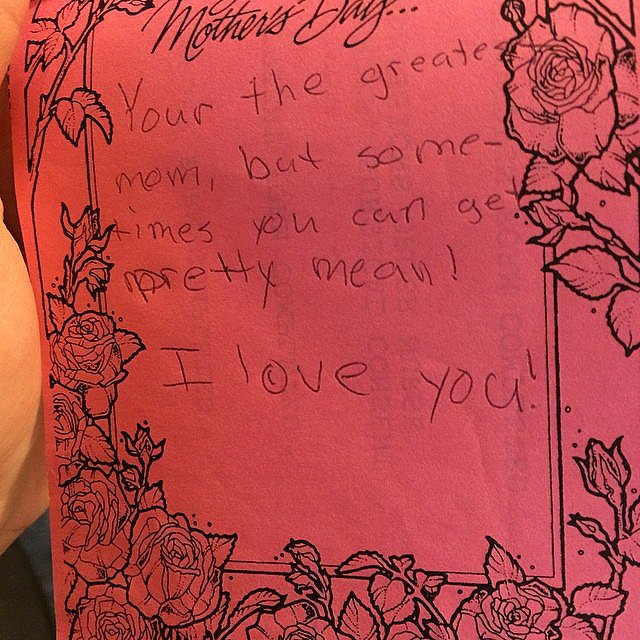 Mother's Day...
Your the greatest
mom, but some-
times you can get
pretty mean!
I love you!